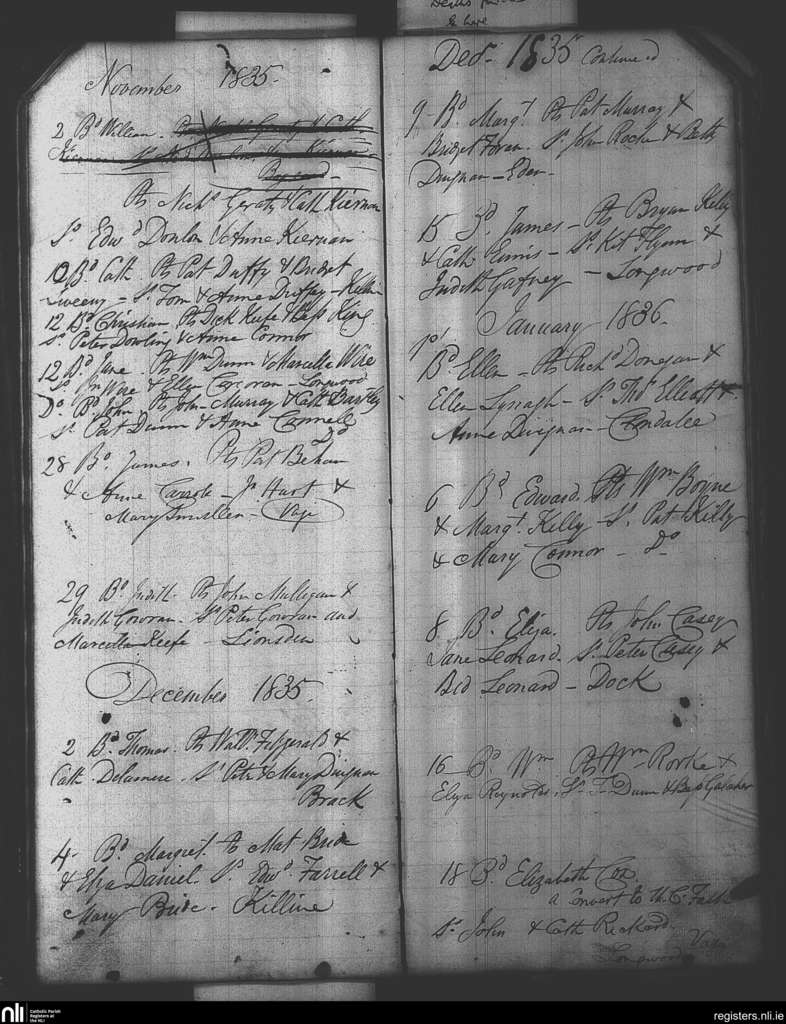 November 1835.
2 Bd William.
Ps Nichs Geraty & Cath Kiernan
Ss Edwd Donlon & Anne Kiernan
10 Bd Cath Ps Pat Duffy & Bridget
Sweeny - Ss Tom & Anne Duffy -
12 Bd Christian Ps Dick Keefe & King
Ss Peter Dowling & Anne Connor
12 Bd Jane. Ps Wm Dunn & Marcella Wire
Ss Jn Wire & Ellen Corcoran - Longwood
Do Bd John Ps John Murray & Cath Bartley
Ss Pat Dunn & Anne Connell
Do
28 Bd James. Ps Pat Behan
& Anne Carrole - Jn Hart &
Mary Smullen -
29 Bd Judith. Ps John Mulligan &
Judith Gowran. Ss Peter Gowran and
Marcella Keefe - Lionsden
December 1835.
2 Bd Thomas. Ps Walt Fitzgerald &
Cath Delamere. Ss Peter & Mary Duignan
Brack
4 Bd Margret. Ps Mat Bride
& Eliza Daniel. Ss Edwd Farrell &
Mary Bride. Killine
& have
Decr 1835 Continued
9 Bd Margt Ps Pat Murray &
Bridget Foran. Ss John Roche & Betty
Duignan - Eden -
15 Bd James - Ps Bryan Kelly
& Cath Ennis - Ss Kit Flynn &
Judith Gafney - Longwood
January 1836.
1st
Bd Ellen - Ps Richd Donegan &
Ellen Lynagh - Ss Thos Elliott &
Anne Duignan - Clondalee
6 Bd Edward. Ps Wm Boyne
& Margt Kelly - Ss Pat Kelly
& Mary Connor - Do
8 Bd Eliza. Ps John Casey
Jane Leonard. Ss Peter Casey &
Bid Leonard - Dock
16 Bd Wm Ps Wm Rorke &
Eliza Reynolds. Ss F. Dunn & Gallaher
18 Bd Elizabeth Cox
a Convert to the C. Faith
Ss John & Cath Rickard.
Longwood
nli Catholic Parish
Registers at
the NLI
registers.nli.ie